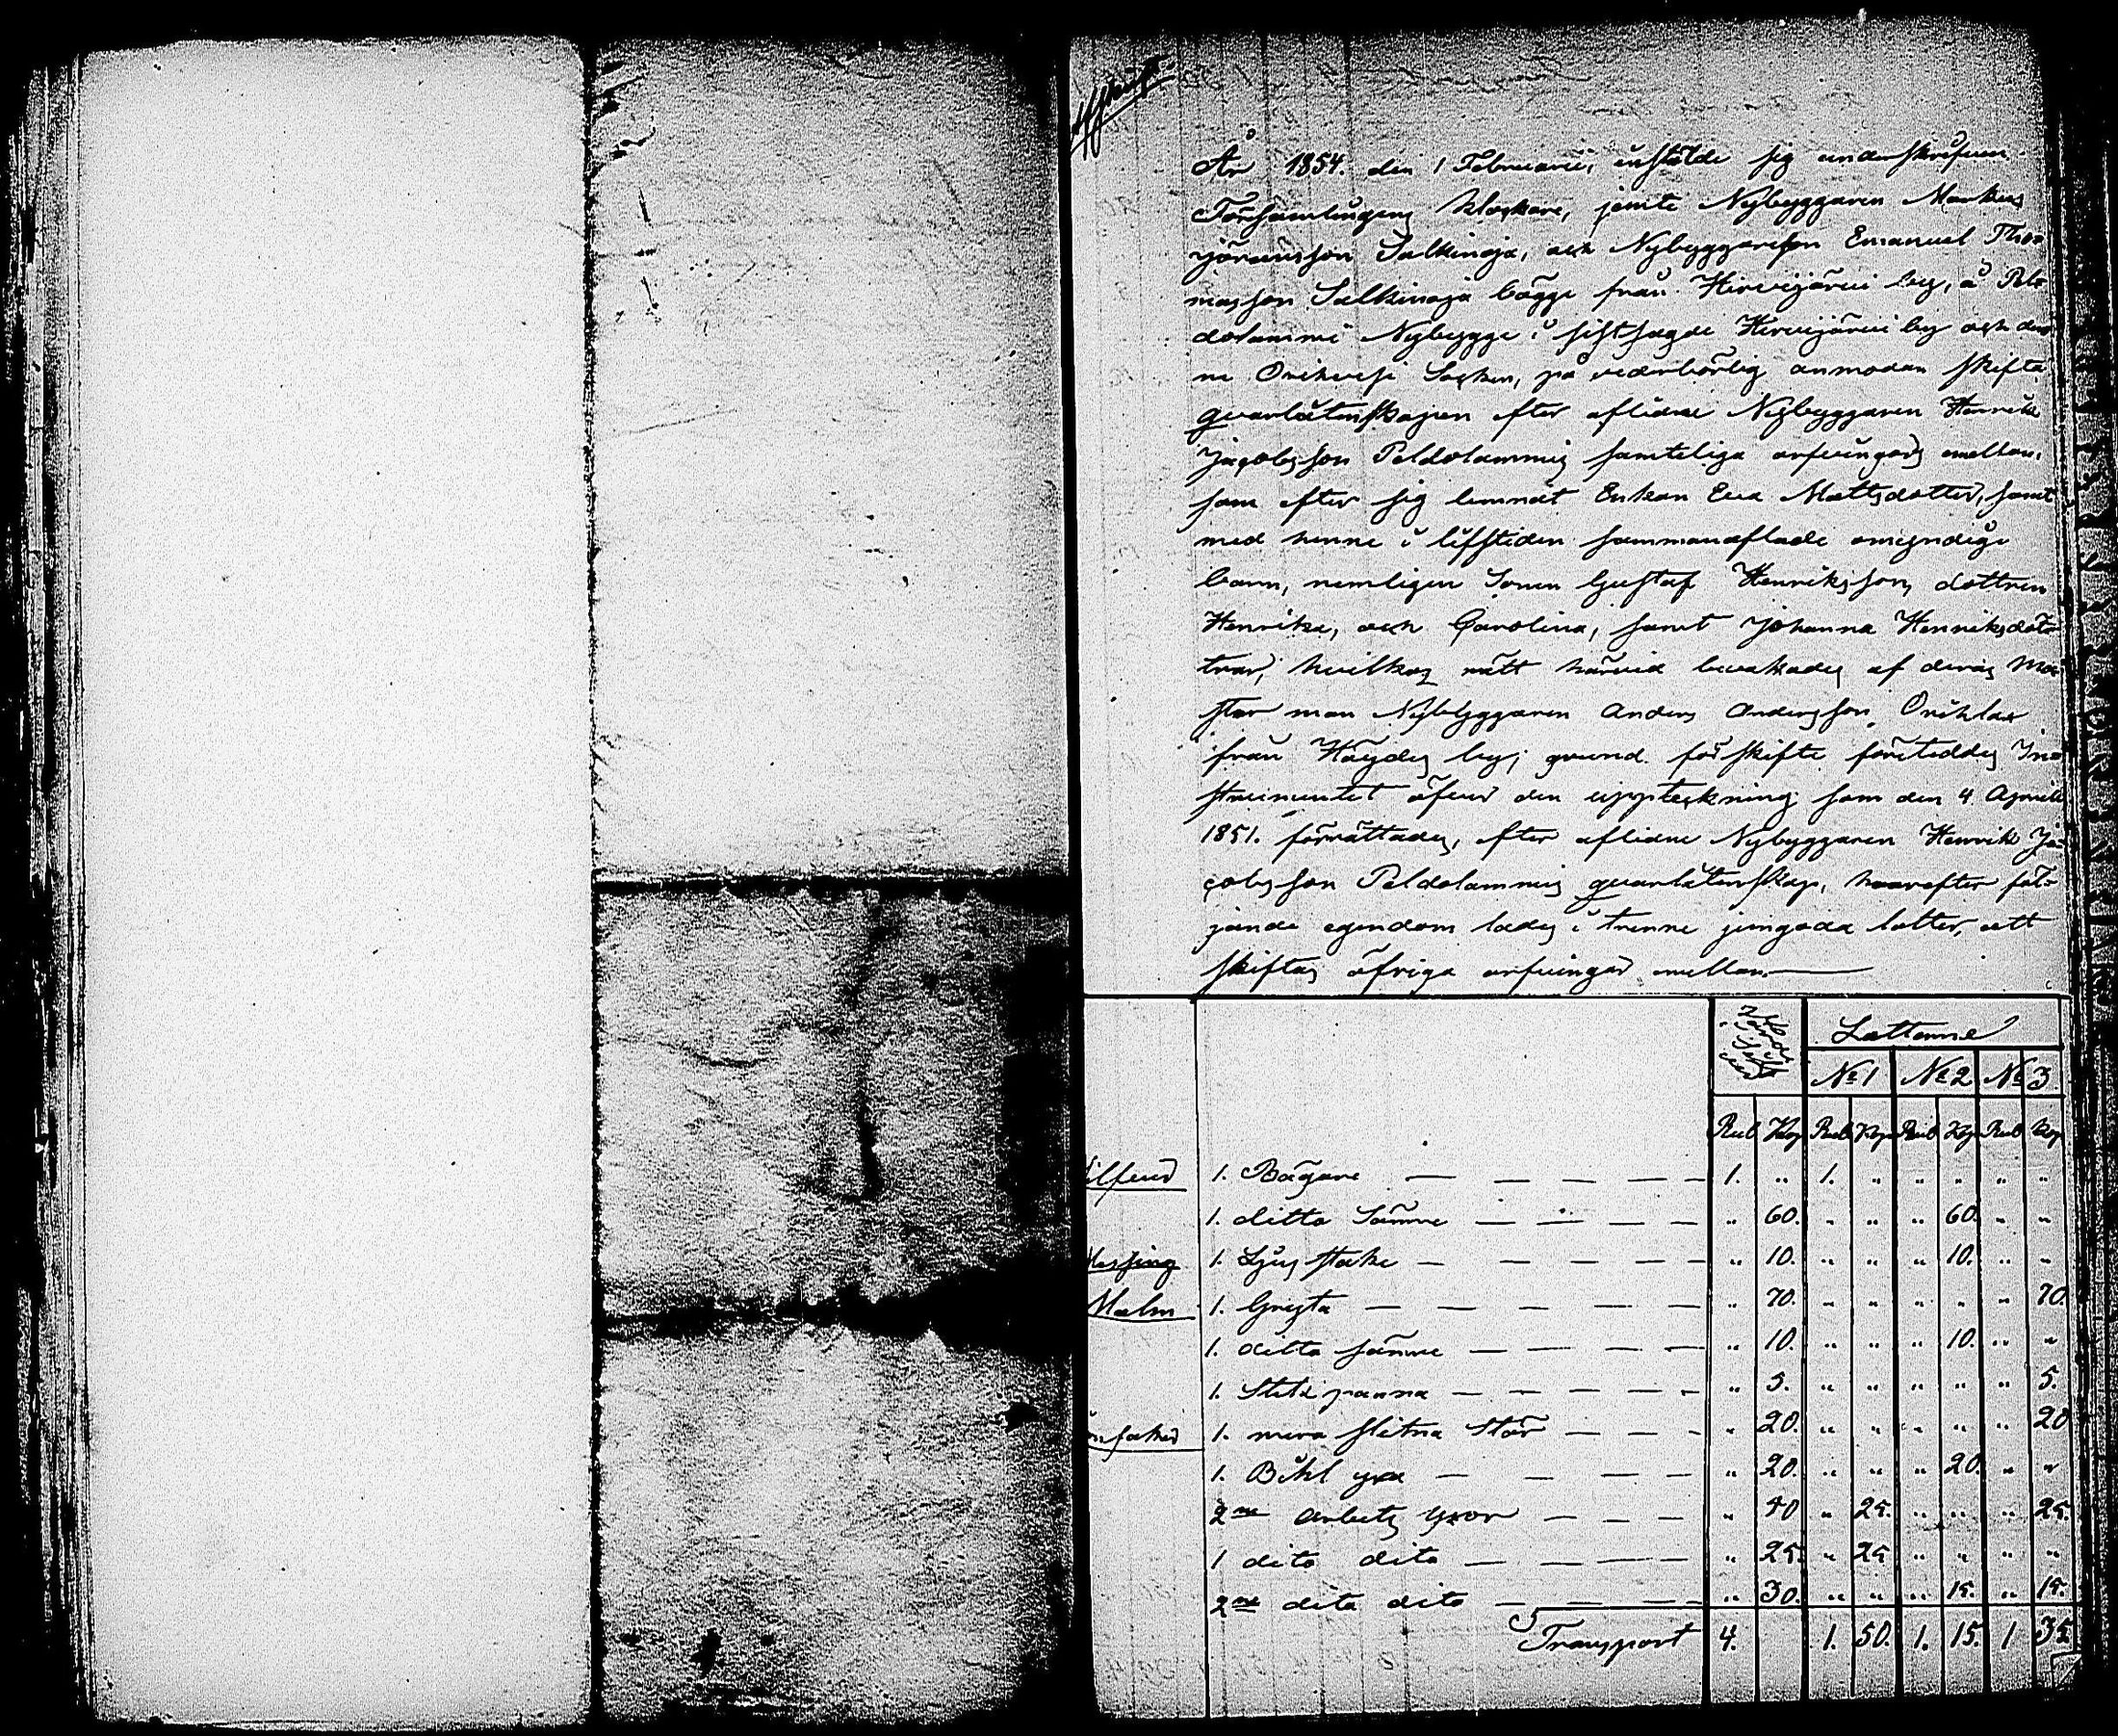 Afskrift
År 1854. den 1 Februarii, instälde sig underskrifven
Församlingens klockare, jemte Nybyggaren Markus
Jöransson Salkinoja, och Nybyggareson Emanuel Tho=
masson Salkinoja bägge från Hirvijärvi by, å Pel=
dolammi Nybygge i sistsagde Hirvijärvi by och den=
na Orihvesi Socken, på vederbörlig anmodan skifta
qvarlåtenskapen efter aflidne Nybyggaren Henrik
Jacobsson Peldolammis samteliga arfvingars emellan,
som efter sig lemnat Enkan Eva Mattsdotter, samt
med henne i lifstiden sammanaflade omyndige
barn, nemligen Sonen Gustaf Henriksson, dottren
Henrika, och Carolina, samt Johanna Henriksdöt=
trar, hvilkas rätt härvid bevakades af deras Mo=
ster man Nybyggaren Anders Andersson Orihlax
från Höydes by; grund för skifte företeddes In=
strumentet öfver den uppteckning som den 4 Aprill
1851. förrättades, efter aflidne Nybyggaren Henrik Ja=
cobsson Peldolammis qvarlåtenskap, hvarefter föl=
jande egendom lades i trenne jemgoda lotter, att
skiftas öfriga arfvingar emellan.
Lottarne
№ 1 № 2 № 3.
Rub Kop Rub Kop Rub Kop Rub Kop
Silfver 1. Bägare — — — — 1. " 1. " " " " "
1. ditto Sämre — — — — " 60. " " " 60. " "
Messing 1. Ljus stake — — — — " 10. " " " 10. " "
Malm 1. Gryta — — — — " 70. " " " " " 70.
1. ditto sämre — — — — " 10. " " " 10. " "
1. Stek panna — — — — " 5. " " " " " 5.
Jernsaker 1. mera slitna Stör — — — " 20. " " " " " 20
1. Bihl yxa — — — — " 20. " " " 20. " "
2ne arbets yxor — — — " 50 " 25. " " " 25.
1 dito dito — — — — " 25. " 25 " " " "
2ne dito dito — — — " 30. " " " 15. " 15.
Transport 4. 1. 50. 1. 15. 1 35